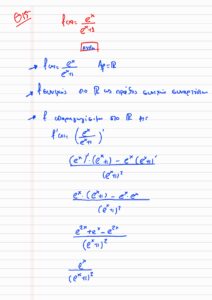 Θ15
f(x) = e^x / (e^x+1)
Λύση
→ f(x) = e^x / (e^x+1) Af = ℝ
→ f συνεχής στο ℝ ως πράξεις συνεχών συναρτήσεων
→ f παραγωγίσιμη στο ℝ με
f'(x) = (e^x / (e^x+1))'
((e^x)'·(e^x+1) - e^x(e^x+1)') / (e^x+1)²
(e^x·(e^x+1) - e^x·e^x) / (e^x+1)²
(e^{2x}+e^x-e^{2x}) / (e^x+1)²
e^x / (e^x+1)²